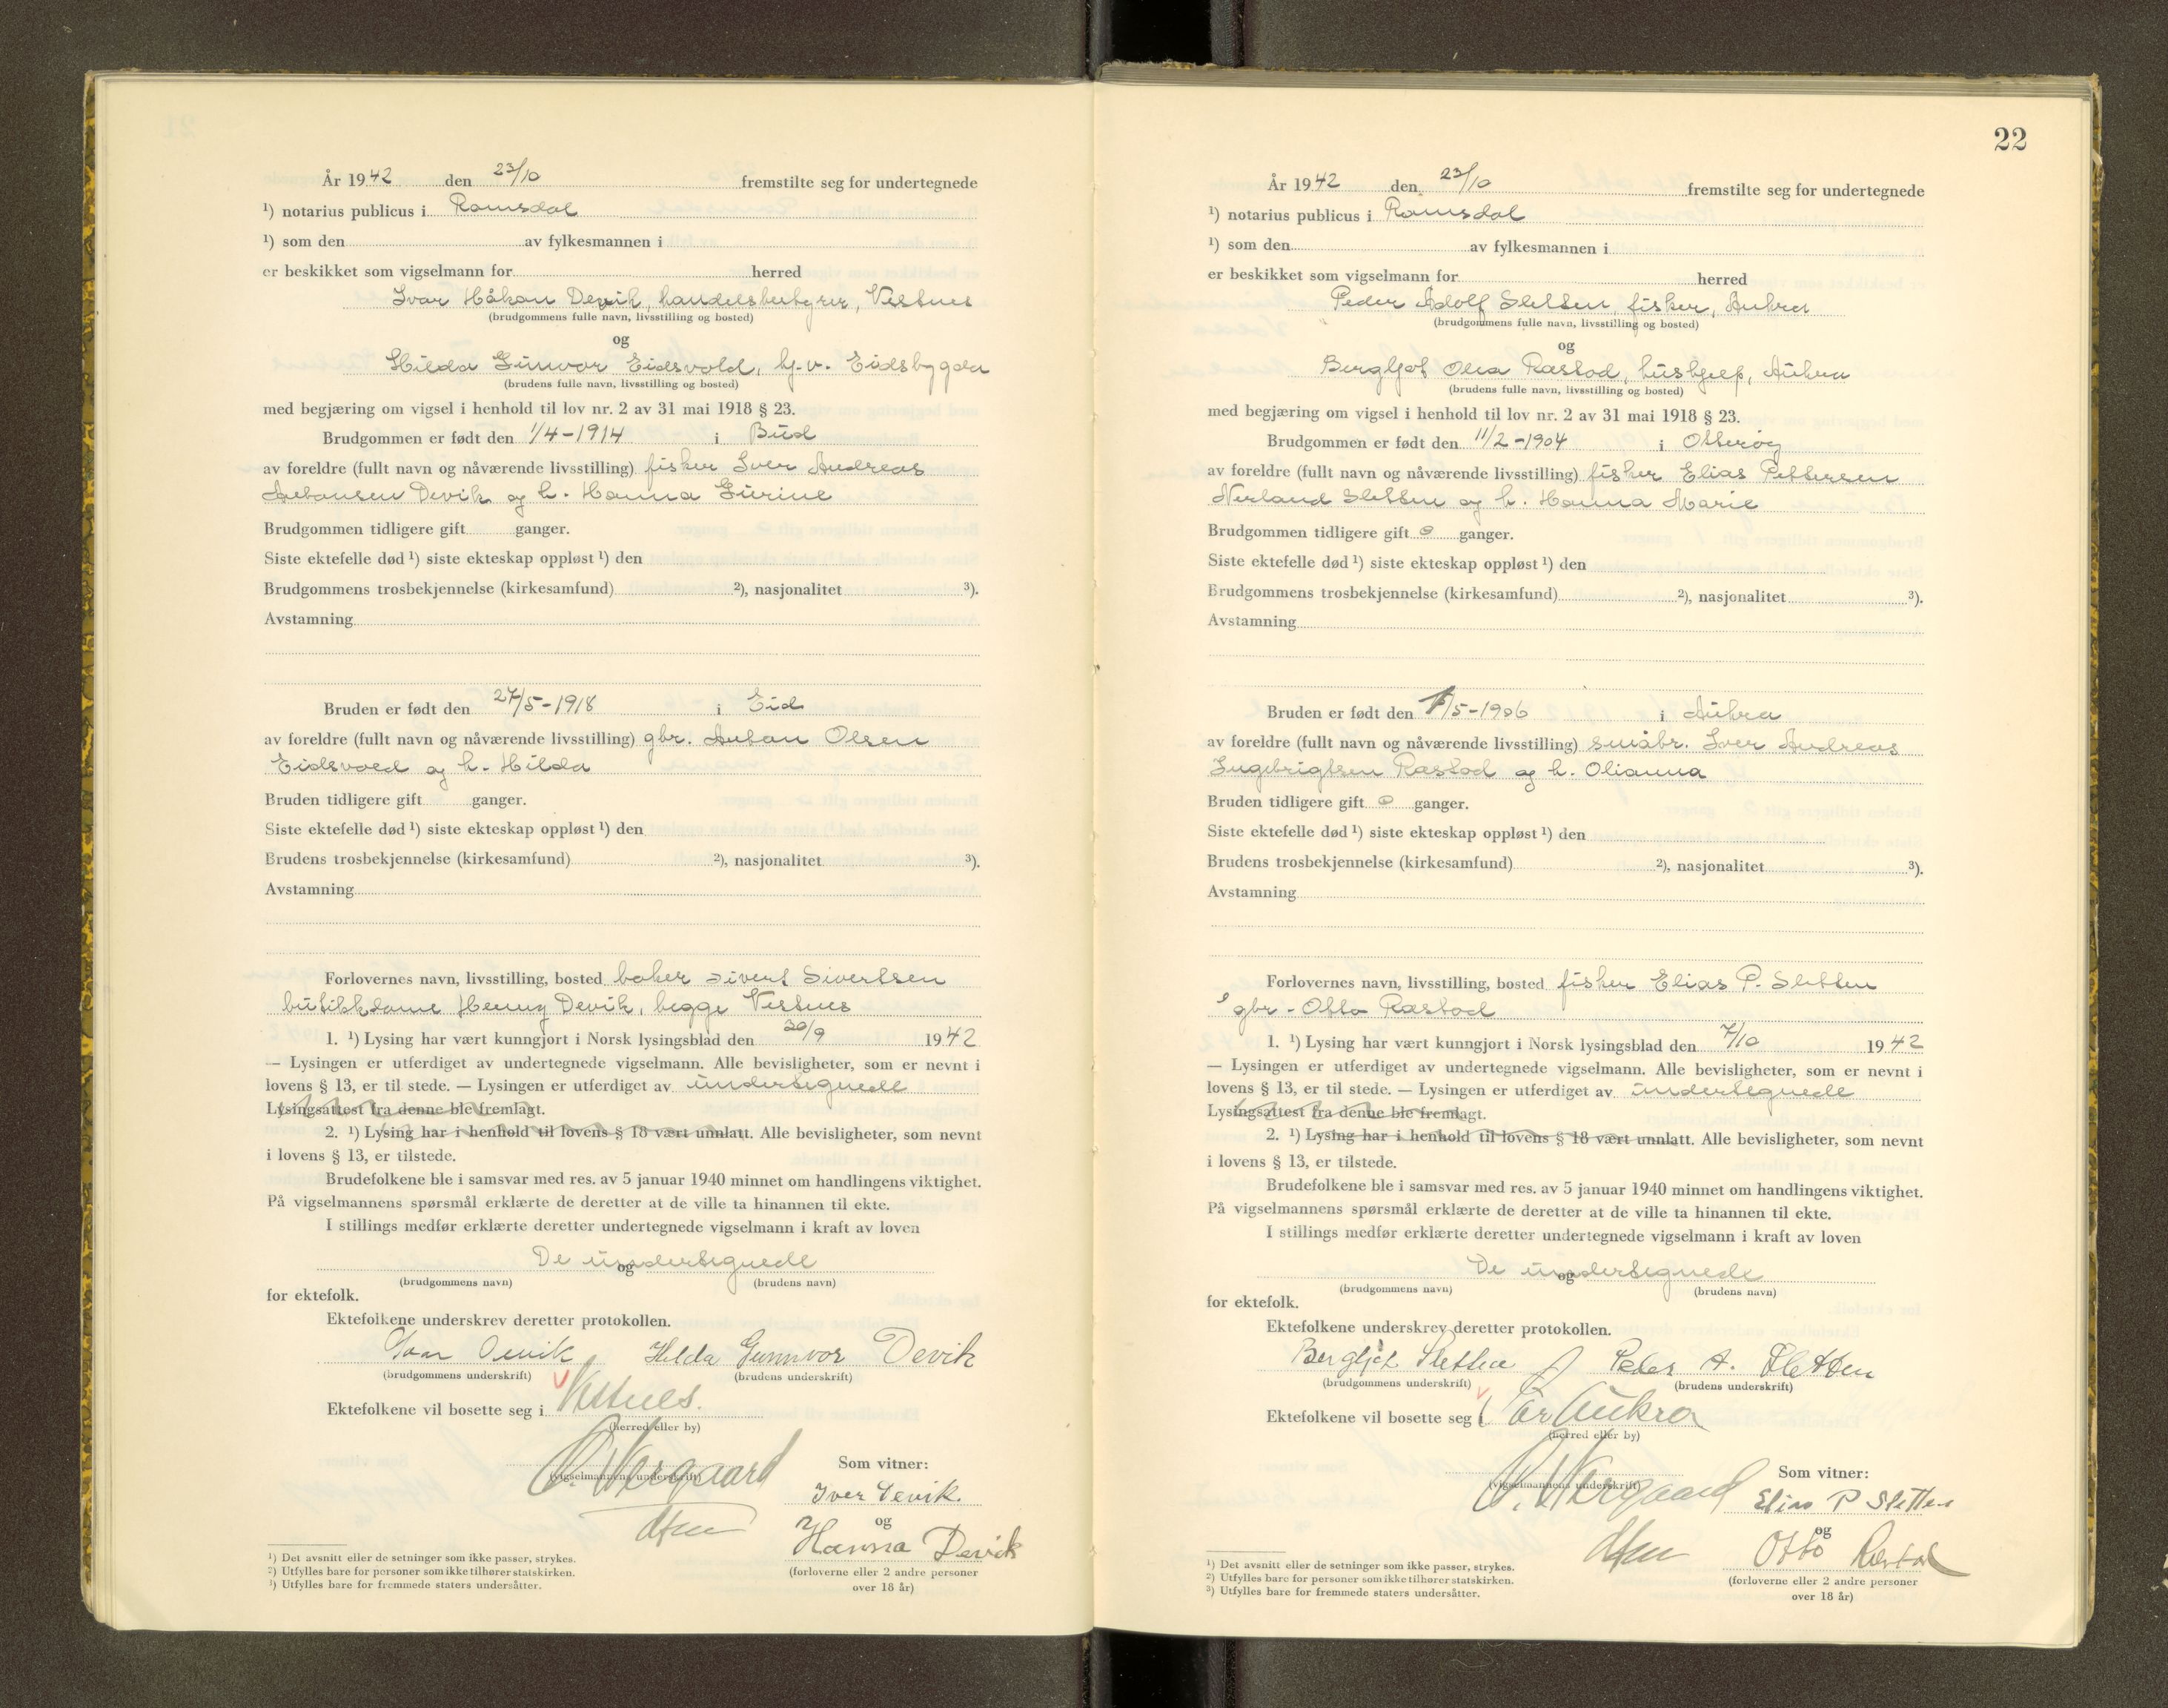 År 1942 den 23/10 fremstilte seg for undertegnede
¹) notarius publicus i Romsdal
¹) som den av fylkesmannen i
er beskikket som vigselmann for herred
Ivar Håkon Devik, handelsbestyrer, Vestnes
(brudgommens fulle navn, livsstilling og bosted)
og
Hilda Gunvor Eidsvold, hj.v. Eidsbygda
(brudens fulle navn, livsstilling og bosted)
med begjæring om vigsel i henhold til lov nr. 2 av 31 mai 1918 § 23.
Brudgommen er født den 1/4-1914 i Bud
av foreldre (fullt navn og nåværende livsstilling) fisker Iver Andreas
Antonsen Devik og h. Hanna Gurine
Brudgommen tidligere gift ganger.
Siste ektefelle død ¹) siste ekteskap oppløst ¹) den
Brudgommens trosbekjennelse (kirkesamfund) ²), nasjonalitet ³).
Avstamning
Bruden er født den 27/5-1918 i Eid
av foreldre (fullt navn og nåværende livsstilling) gbr. Anton Olsen
Eidsvold og h. Hilda
Bruden tidligere gift ganger.
Siste ektefelle død ¹) siste ekteskap oppløst ¹) den
Brudens trosbekjennelse (kirkesamfund) ²), nasjonalitet ³).
Avstamning
Forlovernes navn, livsstilling, bosted baker Sivert Sivertsen
butikkdame Henny Devik, begge Vestnes
1. ¹) Lysing har vært kunngjort i Norsk lysingsblad den 30/9 1942
— Lysingen er utferdiget av undertegnede vigselmann. Alle bevisligheter, som er nevnt i
lovens § 13, er til stede. — Lysingen er utferdiget av undertegnede
Lysingsattest fra denne ble fremlagt.
2. ¹) Lysing har i henhold til lovens § 18 vært unnlatt. Alle bevisligheter, som nevnt
i lovens § 13, er tilstede.
Brudefolkene ble i samsvar med res. av 5 januar 1940 minnet om handlingens viktighet.
På vigselmannens spørsmål erklærte de deretter at de ville ta hinannen til ekte.
I stillings medfør erklærte deretter undertegnede vigselmann i kraft av loven
De undertegnede
og
(brudgommens navn) (brudens navn)
for ektefolk.
Ektefolkene underskrev deretter protokollen.
Ivar Devik Hilda Gunnvor Devik
(brudgommens underskrift) (brudens underskrift)
Ektefolkene vil bosette seg i Vestnes.
(herred eller by)
(vigselmannens underskrift)
Som vitner:
Iver Devik.
og
Hanna Devik
(forloverne eller 2 andre personer
over 18 år)
¹) Det avsnitt eller de setninger som ikke passer, strykes.
²) Utfylles bare for personer som ikke tilhører statskirken.
³) Utfylles bare for fremmede staters undersåtter.
22
År 1942 den 23/10 fremstilte seg for undertegnede
¹) notarius publicus i Romsdal
¹) som den av fylkesmannen i
er beskikket som vigselmann for herred
Peder Adolf Sletten, fisker, Aukra
(brudgommens fulle navn, livsstilling og bosted)
og
Bergljot Olea Rastad, hushjelp, Aukra
(brudens fulle navn, livsstilling og bosted)
med begjæring om vigsel i henhold til lov nr. 2 av 31 mai 1918 § 23.
Brudgommen er født den 11/2-1904 i Otterøy
av foreldre (fullt navn og nåværende livsstilling) fisker Elias Pettersen
Nerland Sletten og h. Hanna Marie
Brudgommen tidligere gift 0 ganger.
Siste ektefelle død ¹) siste ekteskap oppløst ¹) den
Brudgommens trosbekjennelse (kirkesamfund) ²), nasjonalitet ³).
Avstamning
Bruden er født den /5-1906 i Aukra
av foreldre (fullt navn og nåværende livsstilling) småbr. Iver Andreas
Ingebrigtsen Rastad og h. Olianna
Bruden tidligere gift 0 ganger.
Siste ektefelle død ¹) siste ekteskap oppløst ¹) den
Brudens trosbekjennelse (kirkesamfund) ²), nasjonalitet ³).
Avstamning
Forlovernes navn, livsstilling, bosted fisker Elias P. Sletten
gbr. Otto Rastad
1. ¹) Lysing har vært kunngjort i Norsk lysingsblad den 7/10 1942
— Lysingen er utferdiget av undertegnede vigselmann. Alle bevisligheter, som er nevnt i
lovens § 13, er til stede. — Lysingen er utferdiget av undertegnede
Lysingsattest fra denne ble fremlagt.
2. ¹) Lysing har i henhold til lovens § 18 vært unnlatt. Alle bevisligheter, som nevnt
i lovens § 13, er tilstede.
Brudefolkene ble i samsvar med res. av 5 januar 1940 minnet om handlingens viktighet.
På vigselmannens spørsmål erklærte de deretter at de ville ta hinannen til ekte.
I stillings medfør erklærte deretter undertegnede vigselmann i kraft av loven
De undertegnede
og
(brudgommens navn) (brudens navn)
for ektefolk.
Ektefolkene underskrev deretter protokollen.
Bergljot Sletten Peder A. Sletten
(brudgommens underskrift) (brudens underskrift)
Ektefolkene vil bosette seg i Aukra
(herred eller by)
(vigselmannens underskrift)
Som vitner:
Elias P Sletten
og
Otto Rastad
(forloverne eller 2 andre personer
over 18 år)
¹) Det avsnitt eller de setninger som ikke passer, strykes.
²) Utfylles bare for personer som ikke tilhører statskirken.
³) Utfylles bare for fremmede staters undersåtter.